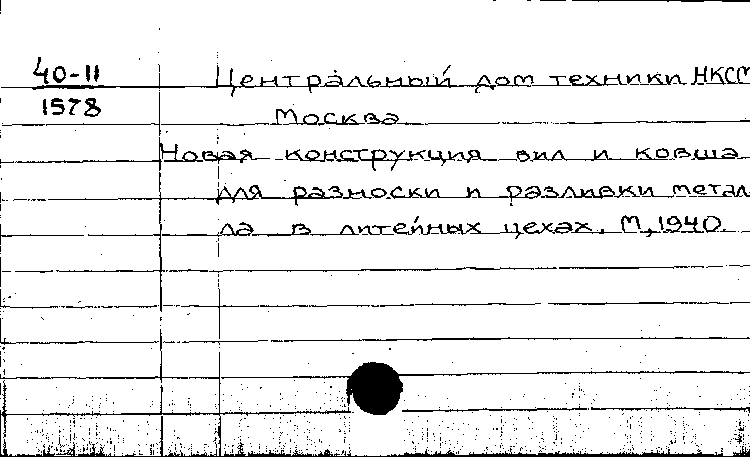 40-11
1578
Центральный дом техники НКСМ
Москва
Новая конструкция вил и ковша
для разноски и разливки метал
ла в литейных цехах. М, 1940.